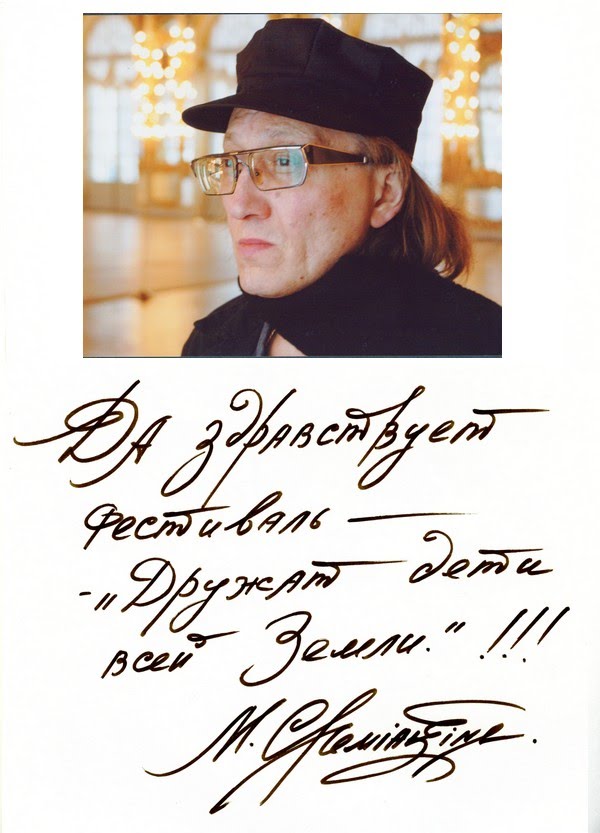 Да здравствует
фестиваль —
-„Дружат дети
всей Земли." !!!
M. Chemiakine.